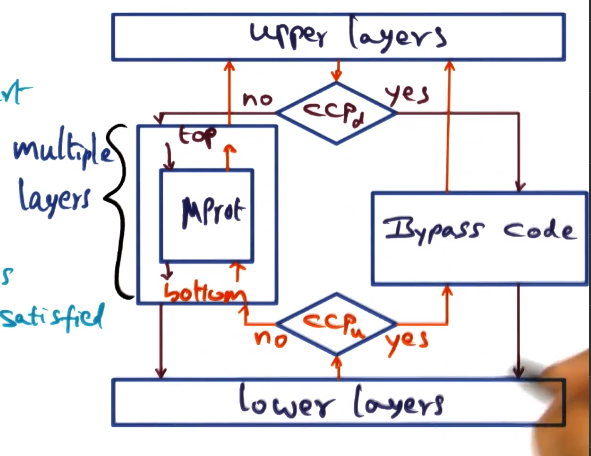 upper layers
rt
no
CCPd
yes
multiple
layers
top
MProt
Bypass code
s
satisfied
bottom
no
CCPu
yes
lower layers